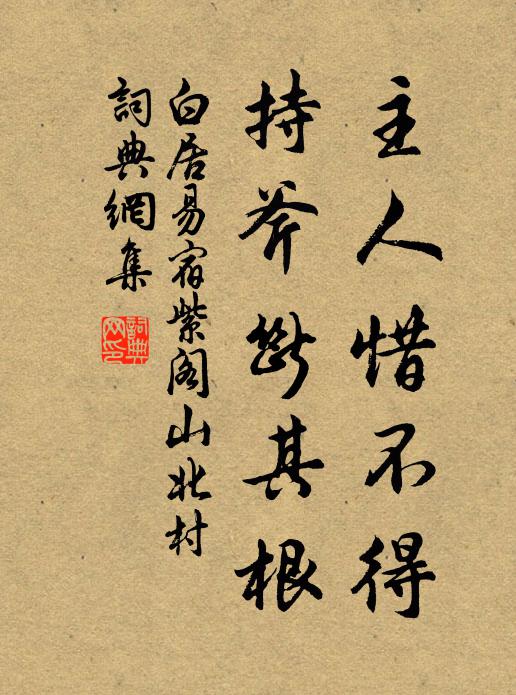 主人惜不得
持斧斷其根
白居易宿紫阁山北村
詞典網集
詞典網印